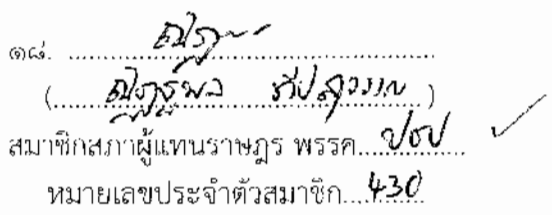 ๑๘. ณัฏฐ์
(ณัฏฐ์พล ทีปสุวรรณ)
สมาชิกสภาผู้แทนราษฎร พรรค ปชป ✓
หมายเลขประจำตัวสมาชิก 430